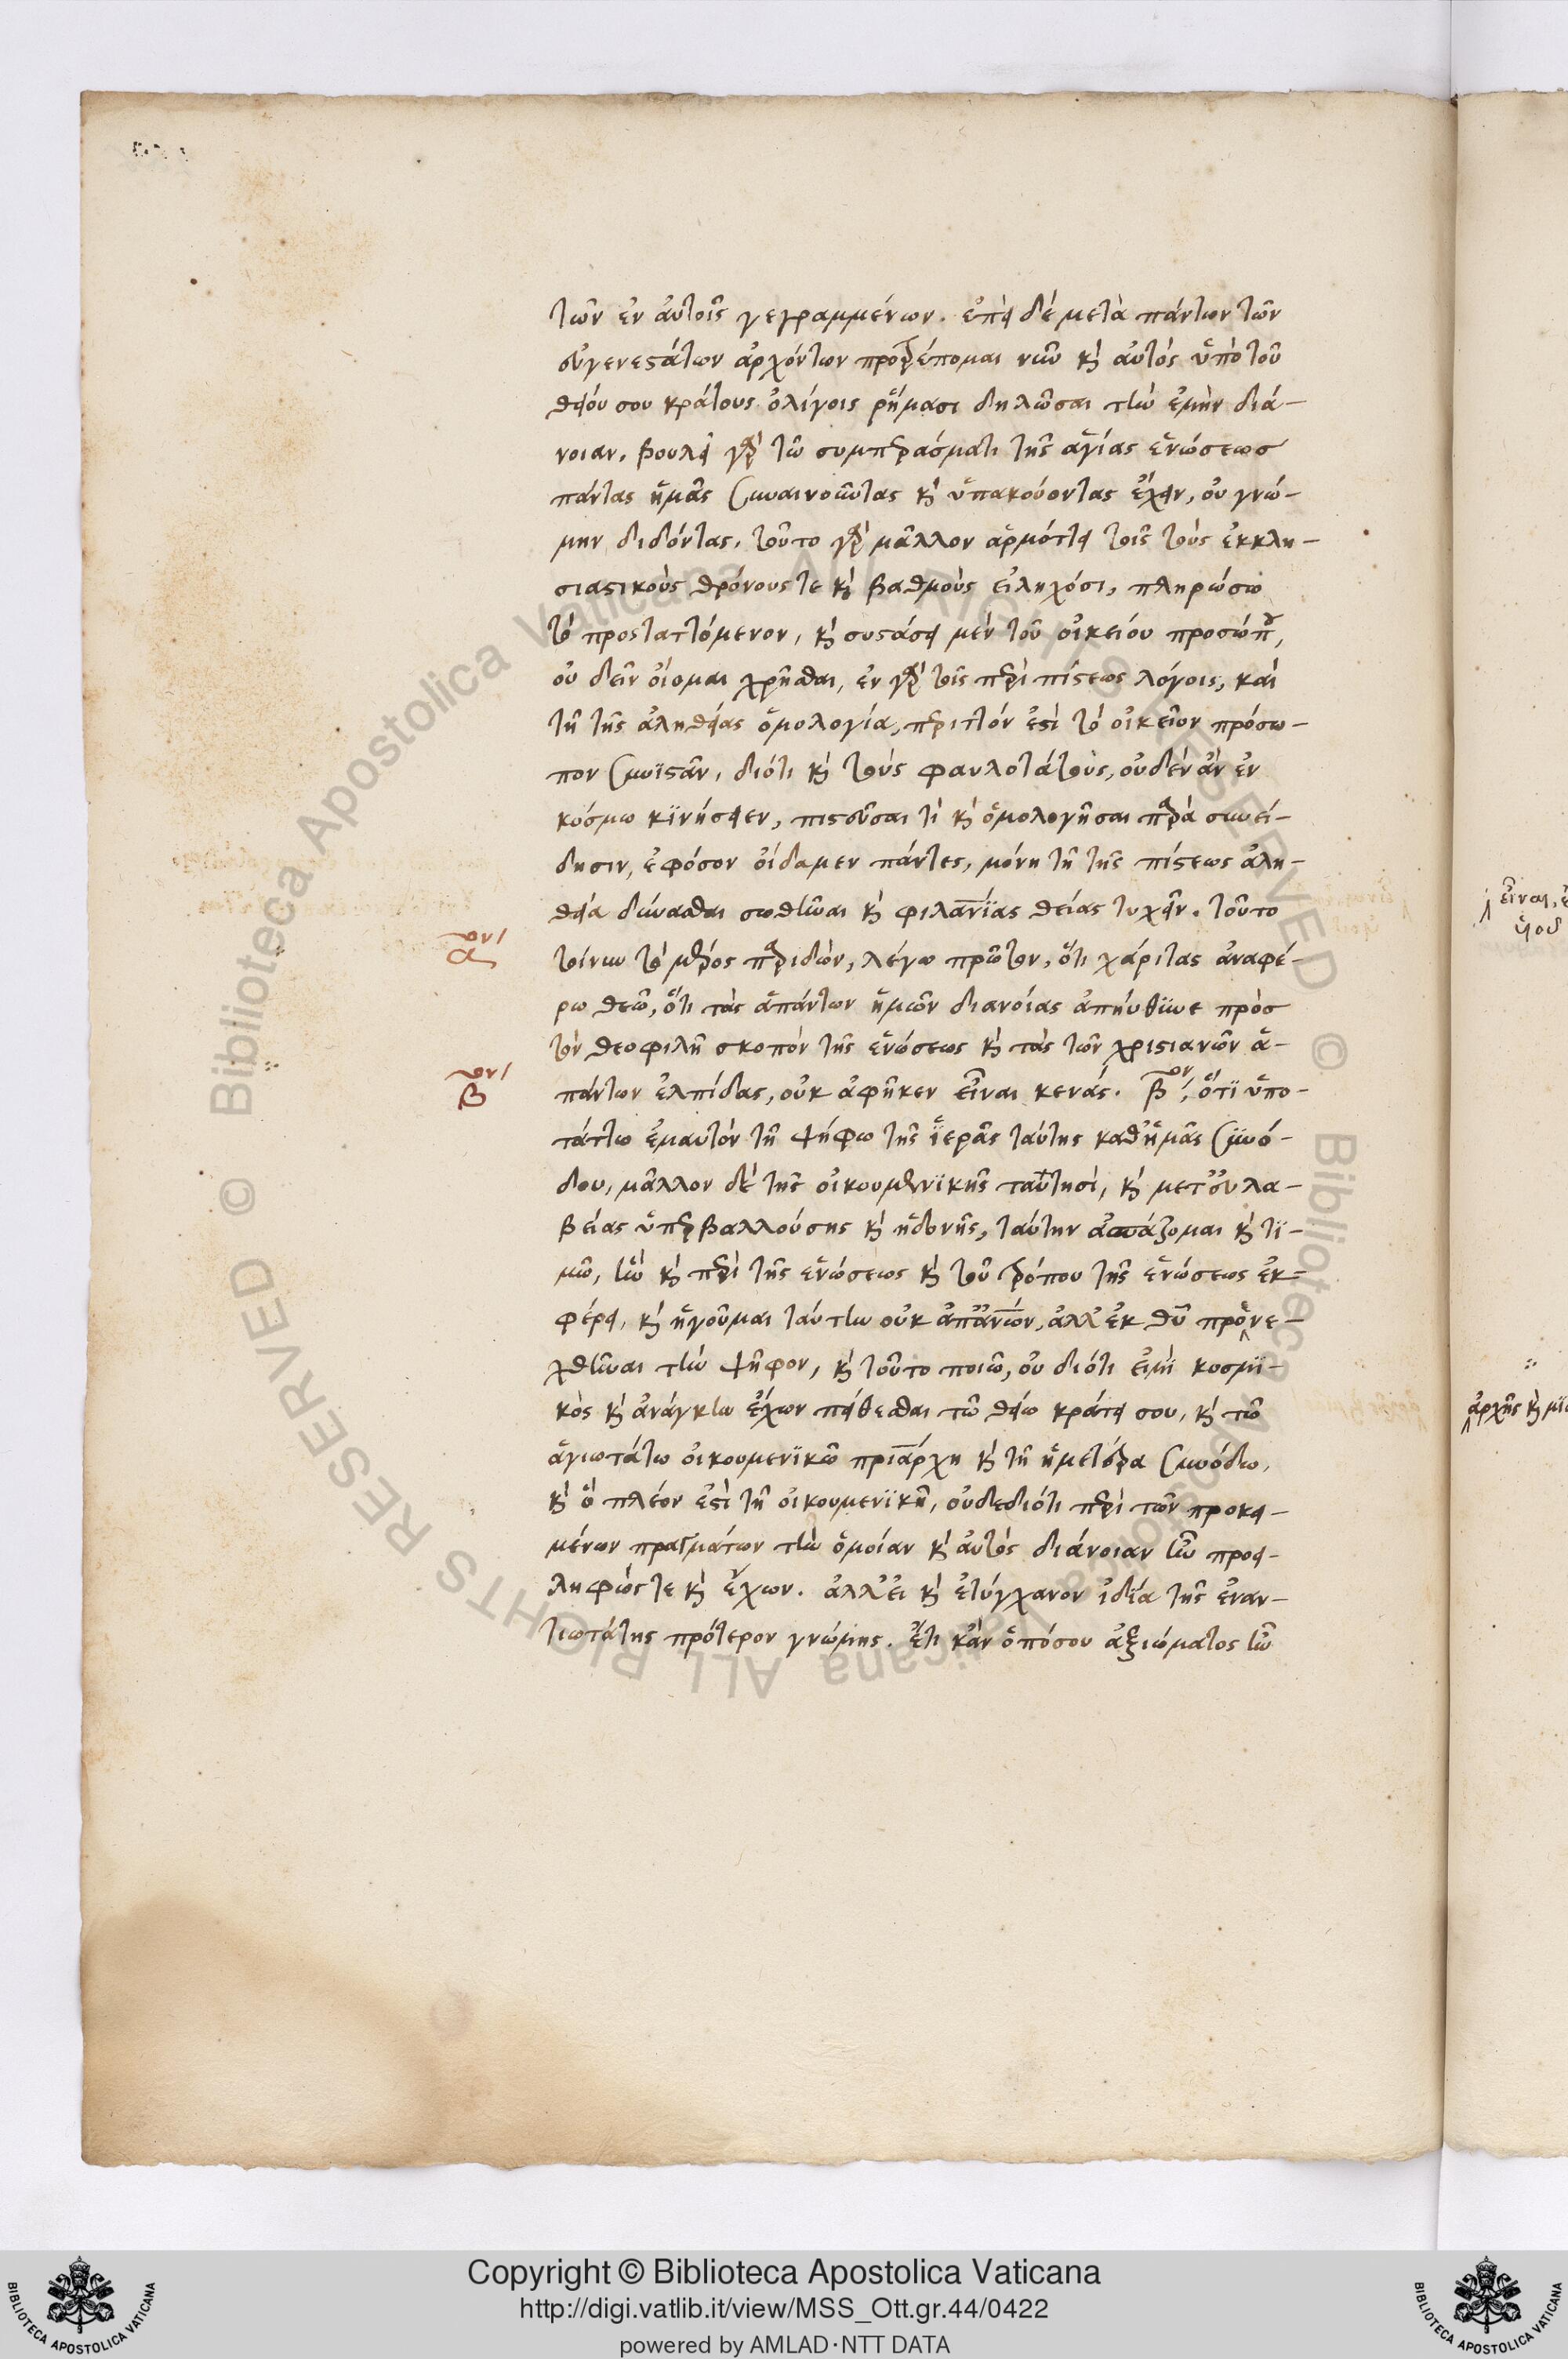 τῶν ἐν αὐτοῖς γεγραμμένων. ἐπεὶ δὲ μετὰ πάντων τῶν
εὐγενεστάτων ἀρχόντων προτρέπομαι νῦν κὴ αὐτὸς ὑπὸ τοῦ
θείου σου κράτους ὀλίγοις ῥήμασι δηλῶσαι τὴν ἐμὴν διά-
νοιαν, βουλεῖ γὰρ τῶ συμπεράσματι τῆς ἁγίας ἑνώσεως
πάντας ἡμᾶς συναινοῦντας κὴ ὑπακούοντας ἔχειν, οὐ γνώ-
μην διδόντας, τοῦτο γὰρ μᾶλλον ἁρμόττει τοῖς τοὺς ἐκκλη-
σιαστικοὺς θρόνους τε κὴ βαθμοὺς εἰληχόσι, πληρώσω
τὸ προσταττόμενον, κὴ συστάσει μὲν τοῦ οἰκείου προσώπου,
οὐ δεῖν οἴομαι χρῆσθαι, ἐν γὰρ τοῖς περὶ πίστεως λόγοις, καὶ
τῆ τῆς ἀληθείας ὁμολογία, περιττόν ἐστὶ τὸ οἰκεῖον πρόσω-
πον συνϊστᾶν, διότι κὴ τοὺς φαυλοτάτους, οὐδὲν ἂν ἐν
κόσμω κϊνήσειεν, πιστεῦσαι τὶ κὴ ὁμολογῆσαι παρὰ συνεί-
δησιν, ἐφόσον οἴδαμεν πάντες, μόνη τῆ τῆς πίστεως ἀλη-
θεία δύνασθαι σωθῆναι κὴ φιλανΐας θείας τυχεῖν. τοῦτο
α<sup>ον</sup>
τοίνυν τὸ μέρος παριδών, λέγω πρῶτον, ὅτι χάριτας ἀναφέ-
ρω θεῶ, ὅτι τὰς ἁπάντων ἡμῶν διανοίας ἀπηύθϋνε πρὸς
τὸν θεοφιλῆ σκοπὸν τῆς ἑνώσεως κὴ τὰς τῶν χριστιανῶν ἁ-
β<sup>ον</sup>
πάντων ἐλπίδας, οὐκ ἀφῆκεν εἶναι κενάς. β<sup>ον</sup>, ὅτϊ ὑπο-
τάττω ἐμαυτὸν τῆ ψήφω τῆς ϊἑρᾶς ταύτης καθἡμᾶς συνό-
δου, μᾶλλον δὲ τῆς οἰκουμενϊκῆς ταύτησὶ, κὴ μετ'εὐλα-
βείας ὑπερβαλλούσης κὴ ἡδονῆς, ταύτην ἀσπάζομαι κὴ τϊ-
μῶ, ἣν κὴ περὶ τῆς ἑνώσεως κὴ τοῦ τρόπου τῆς ἑνώσεως ἐκ-
φέρει, κὴ ἡγοῦμαι ταύτην οὐκ ἀπ'ἀνῶν, ἀλλ'ἐκ θυ προηνε-
χθῆναι τὴν ψῆφον, κὴ τοῦτο ποιῶ, οὐ διότι εἰμὶ κοσμϊ-
κὸς κὴ ἀνάγκην ἔχων πείθεσθαι τῶ θείω κράτει σου, κὴ τῶ
ἁγιωτάτω οἰκουμενϊκῶ πριάρχη κὴ τῆ ἡμετέρα συνόδω,
κὴ ὃ πλέον ἐστὶ τῆ οἰκουμενϊκῆ, οὐδεδιότι περὶ τῶν προκει-
μένων πραγμάτων τὴν ὁμοίαν κὴ αὐτὸς διάνοιαν ἦν προει-
ληφώς τε κὴ ἔχων. ἀλλ'εἰ κὴ ἐτύγχανον ἰδία τῆς ἐναν-
τιωτάτης πρότερον γνώμης. ἔτι κἂν ὁπόσου ἀξιώματος ἦν
ἀρχῆς κὴ
Copyright © Biblioteca Apostolica Vaticana
http://digi.vatlib.it/view/MSS_Ott.gr.44/0422
powered by AMLAD·NTT DATA
BIBLIOTECA APOSTOLICA VATICANA
BIBLIOTECA APOSTOLICA VATICANA
© Biblioteca Apostolica Vaticana ALL RIGHTS RESERVED © Biblioteca Apostolica Vaticana ALL RIGHTS RESERVED